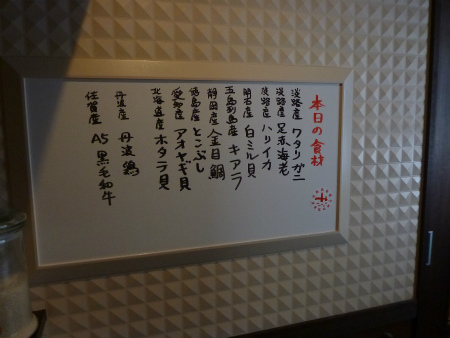 本日の食材
淡路産 ワタリガニ
淡路産 足赤海老
淡路産 ハリイカ
明石産 白ミル貝
五島列島産 キアラ
静岡産 金目鯛
徳島産 とこぶし
愛知産 アオヤギ貝
北海道産 ホタテ貝
丹波産 丹波鶏
佐賀産 A5黒毛和牛